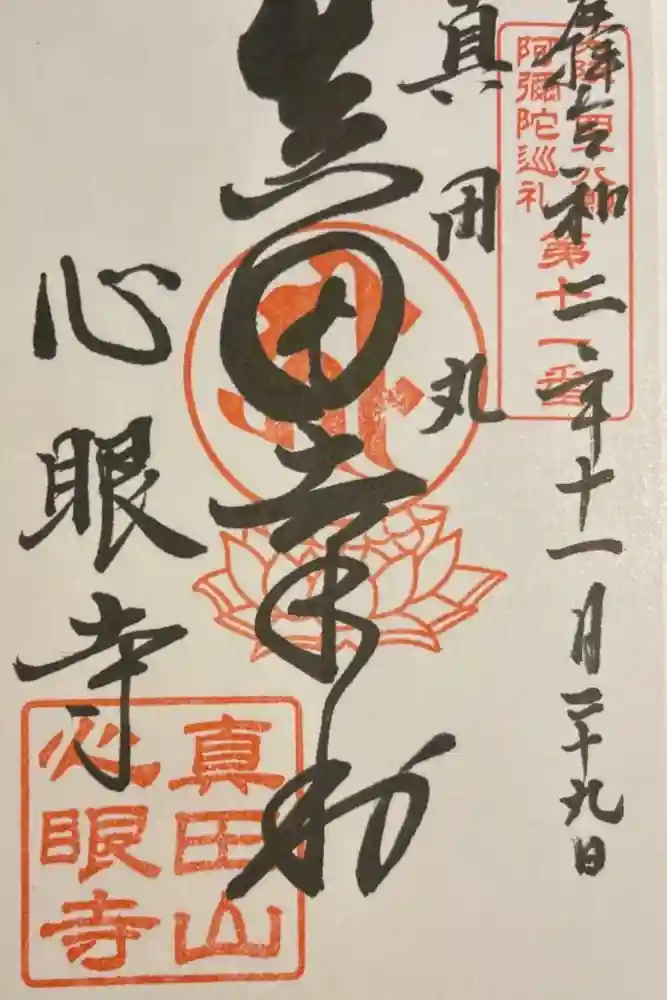 奉拝 令和二年十一月二十九日
真田丸
真田幸村
心眼寺
阿彌陀巡礼
第十一番
真田山
心眼寺